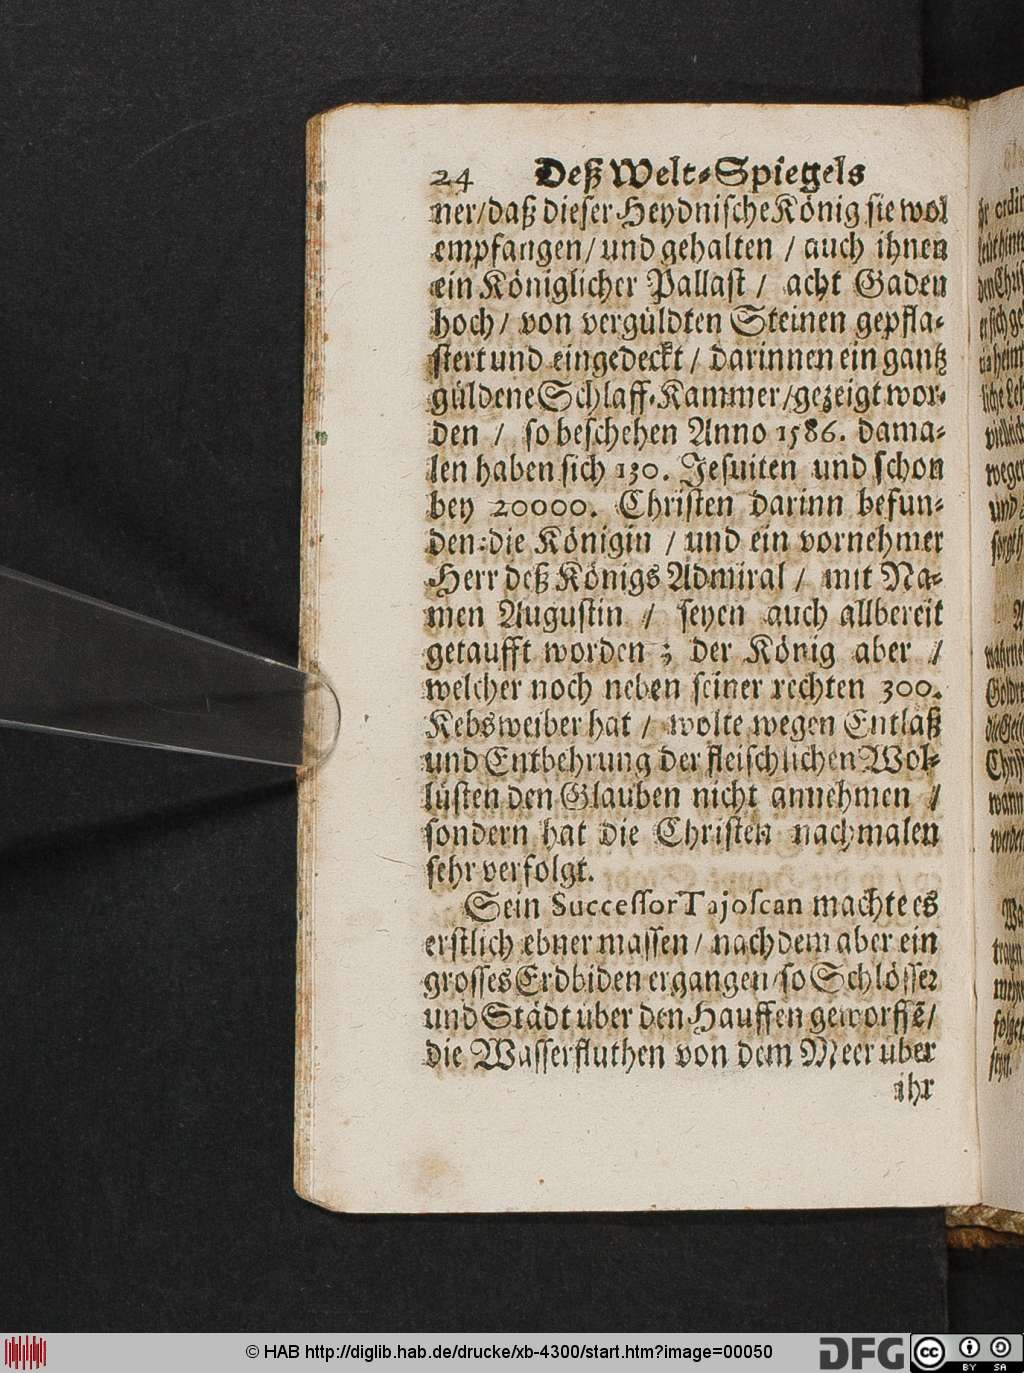 24 Deß Welt-Spiegels
ner/ daß dieser Heydnische König sie wol
empfangen/ und gehalten / auch ihnen
ein Königlicher Pallast / acht Gaden
hoch/ von vergüldten Steinen gepfla-
stert und eingedeckt / darinnen ein gantz
güldene Schlaff-Kammer/gezeigt wor-
den / so beschehen Anno 1586. dama-
len haben sich 130. Jesuiten und schon
bey 20000. Christen darinn befun-
den: die Königin / und ein vornehmer
Herr deß Königs Admiral / mit Na-
men Augustin / seyen auch allbereit
getaufft worden ; der König aber /
welcher noch neben seiner rechten 300.
Kebsweiber hat / wolte wegen Entlaß
und Entbehrung der fleischlichen Wol-
lüsten den Glauben nicht annehmen /
sondern hat die Christen nachmalen
sehr verfolgt.
Sein Successor Tajoscan machte es
erstlich ebner massen / nachdem aber ein
grosses Erdbiden ergangen/ so Schlösser
und Städt über den Hauffen geworffē/
die Wasserfluthen von dem Meer über
ihr
© HAB http://diglib.hab.de/drucke/xb-4300/start.htm?image=00050
DFG
cc
BY SA